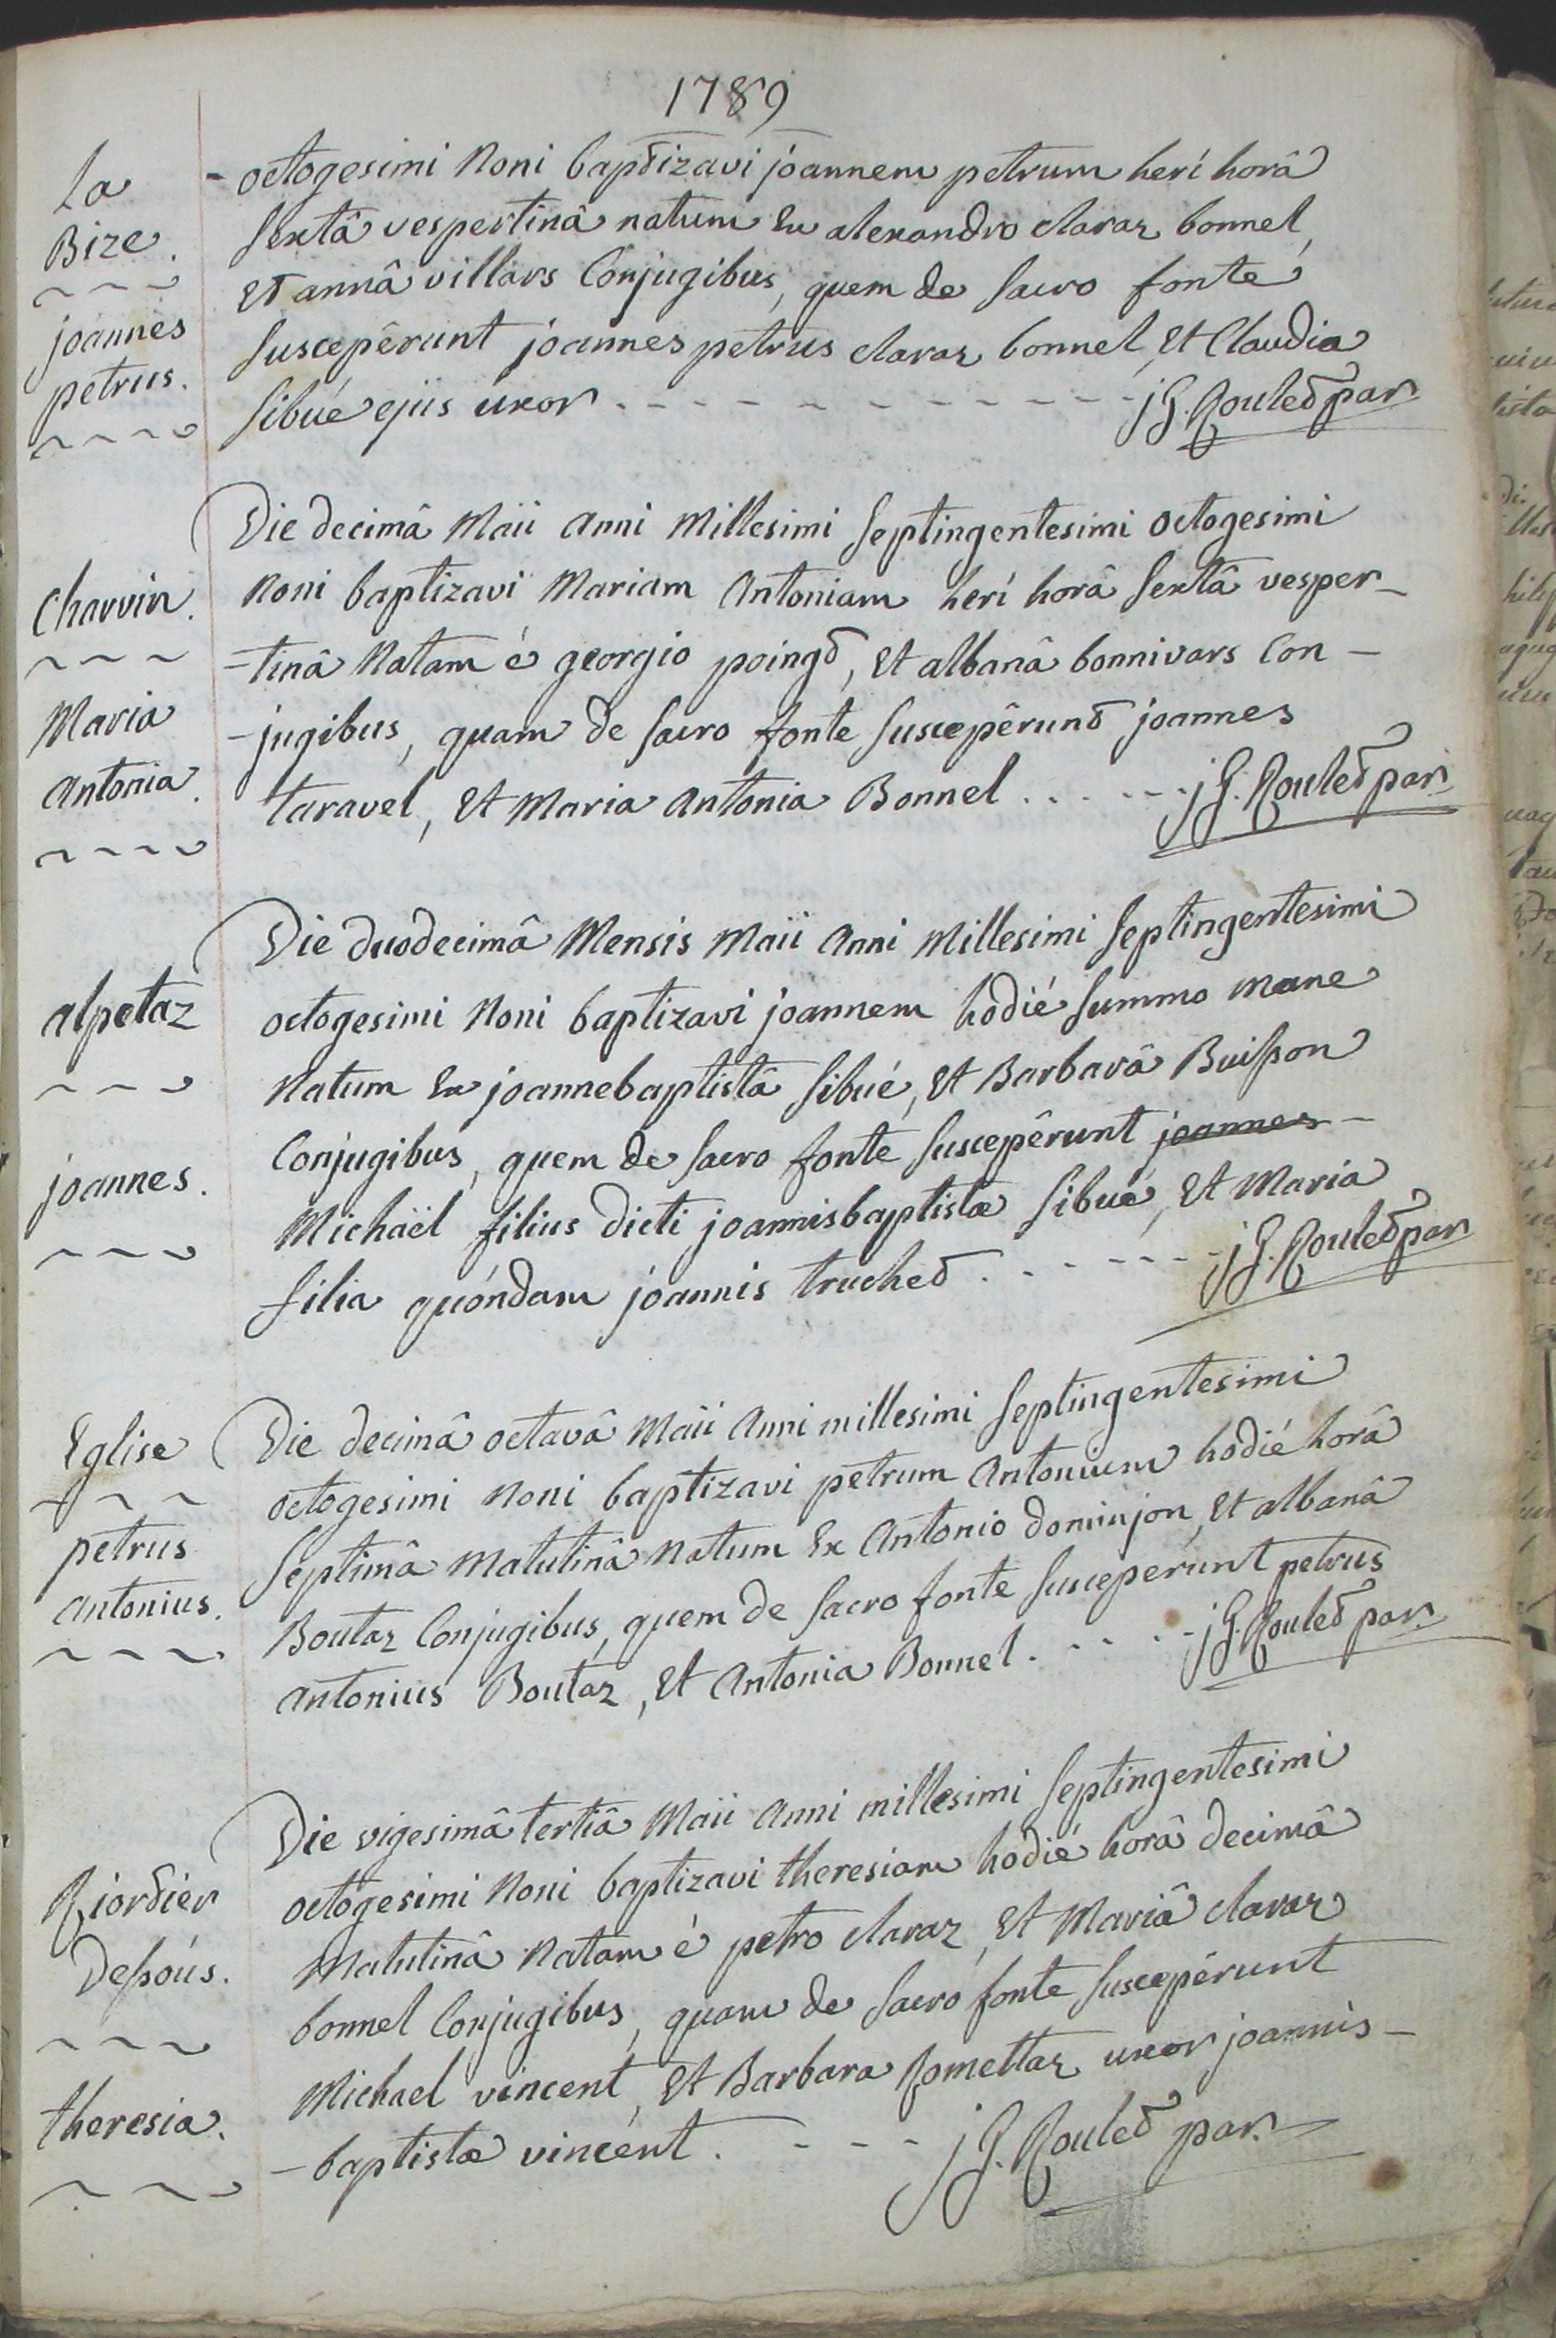 1789
La
Bize.
joannes
petrus.
- octogesimi Noni baptizavi joannem petrum herí horâ
sextâ vespertinâ natum Ex alexandro claraz bonnel,
Et annâ villars Conjugibus, quem de sacro fonte
suscepêrunt joannes petrus claraz bonnel, Et Claudia
sibué ejus uxor. - - - - - - - - - - - - j G. Roulet par.
Charvin.
Maria
Antonia.
Die decimâ Maii Anni Millesimi septingentesimi octogesimi
Noni baptizavi Mariam Antoniam herí horâ sextâ vesper-
-tinâ Natam é georgio poingt, Et albanâ bonnivars Con-
-jugibus, quam de sacro fonte suscepêrunt joannes
taravel, Et Maria Antonia Bonnel . . . - - - j G. Roulet par.
alpetaz
joannes.
Die duodecimâ Mensis Maii Anni Millesimi septingentesimi
octogesimi Noni baptizavi joannem hodié summo mane
Natum Ex joannebaptistâ sibué, Et Barbarâ Buisson
Conjugibus, quem de sacro fonte suscepêrunt joannes -
Michaël filius dicti joannisbaptistæ sibué, Et Maria
filia quóndam joannis truchet . - - - - - - j G. Roulet par
Eglise
petrus
antonius.
Die decimâ octavâ Maii Anni millesimi septingentesimi
octogesimi Noni baptizavi petrum Antonium hodié horâ
septimâ Matutinâ Natum Ex Antonio dominjon, Et albanâ
Boutaz Conjugibus, quem de sacro fonte suscepérunt petrus
antonius Boutaz, Et Antonia Bonnel. - - - - j G. Roulet par.
Riordier
Dessóus.
theresia.
Die vigesimâ tertiâ Maii Anni millesimi septingentesimi
octogesimi Noni baptizavi theresiam hodié horâ decimâ
Matutinâ Natam é petro claraz, Et Mariâ claraz
bonnel Conjugibus, quam de sacro fonte suscepérunt
Michael vincent, Et Barbara Romettaz uxor joannis-
-baptistæ vincent. - - - j G. Roulet par.